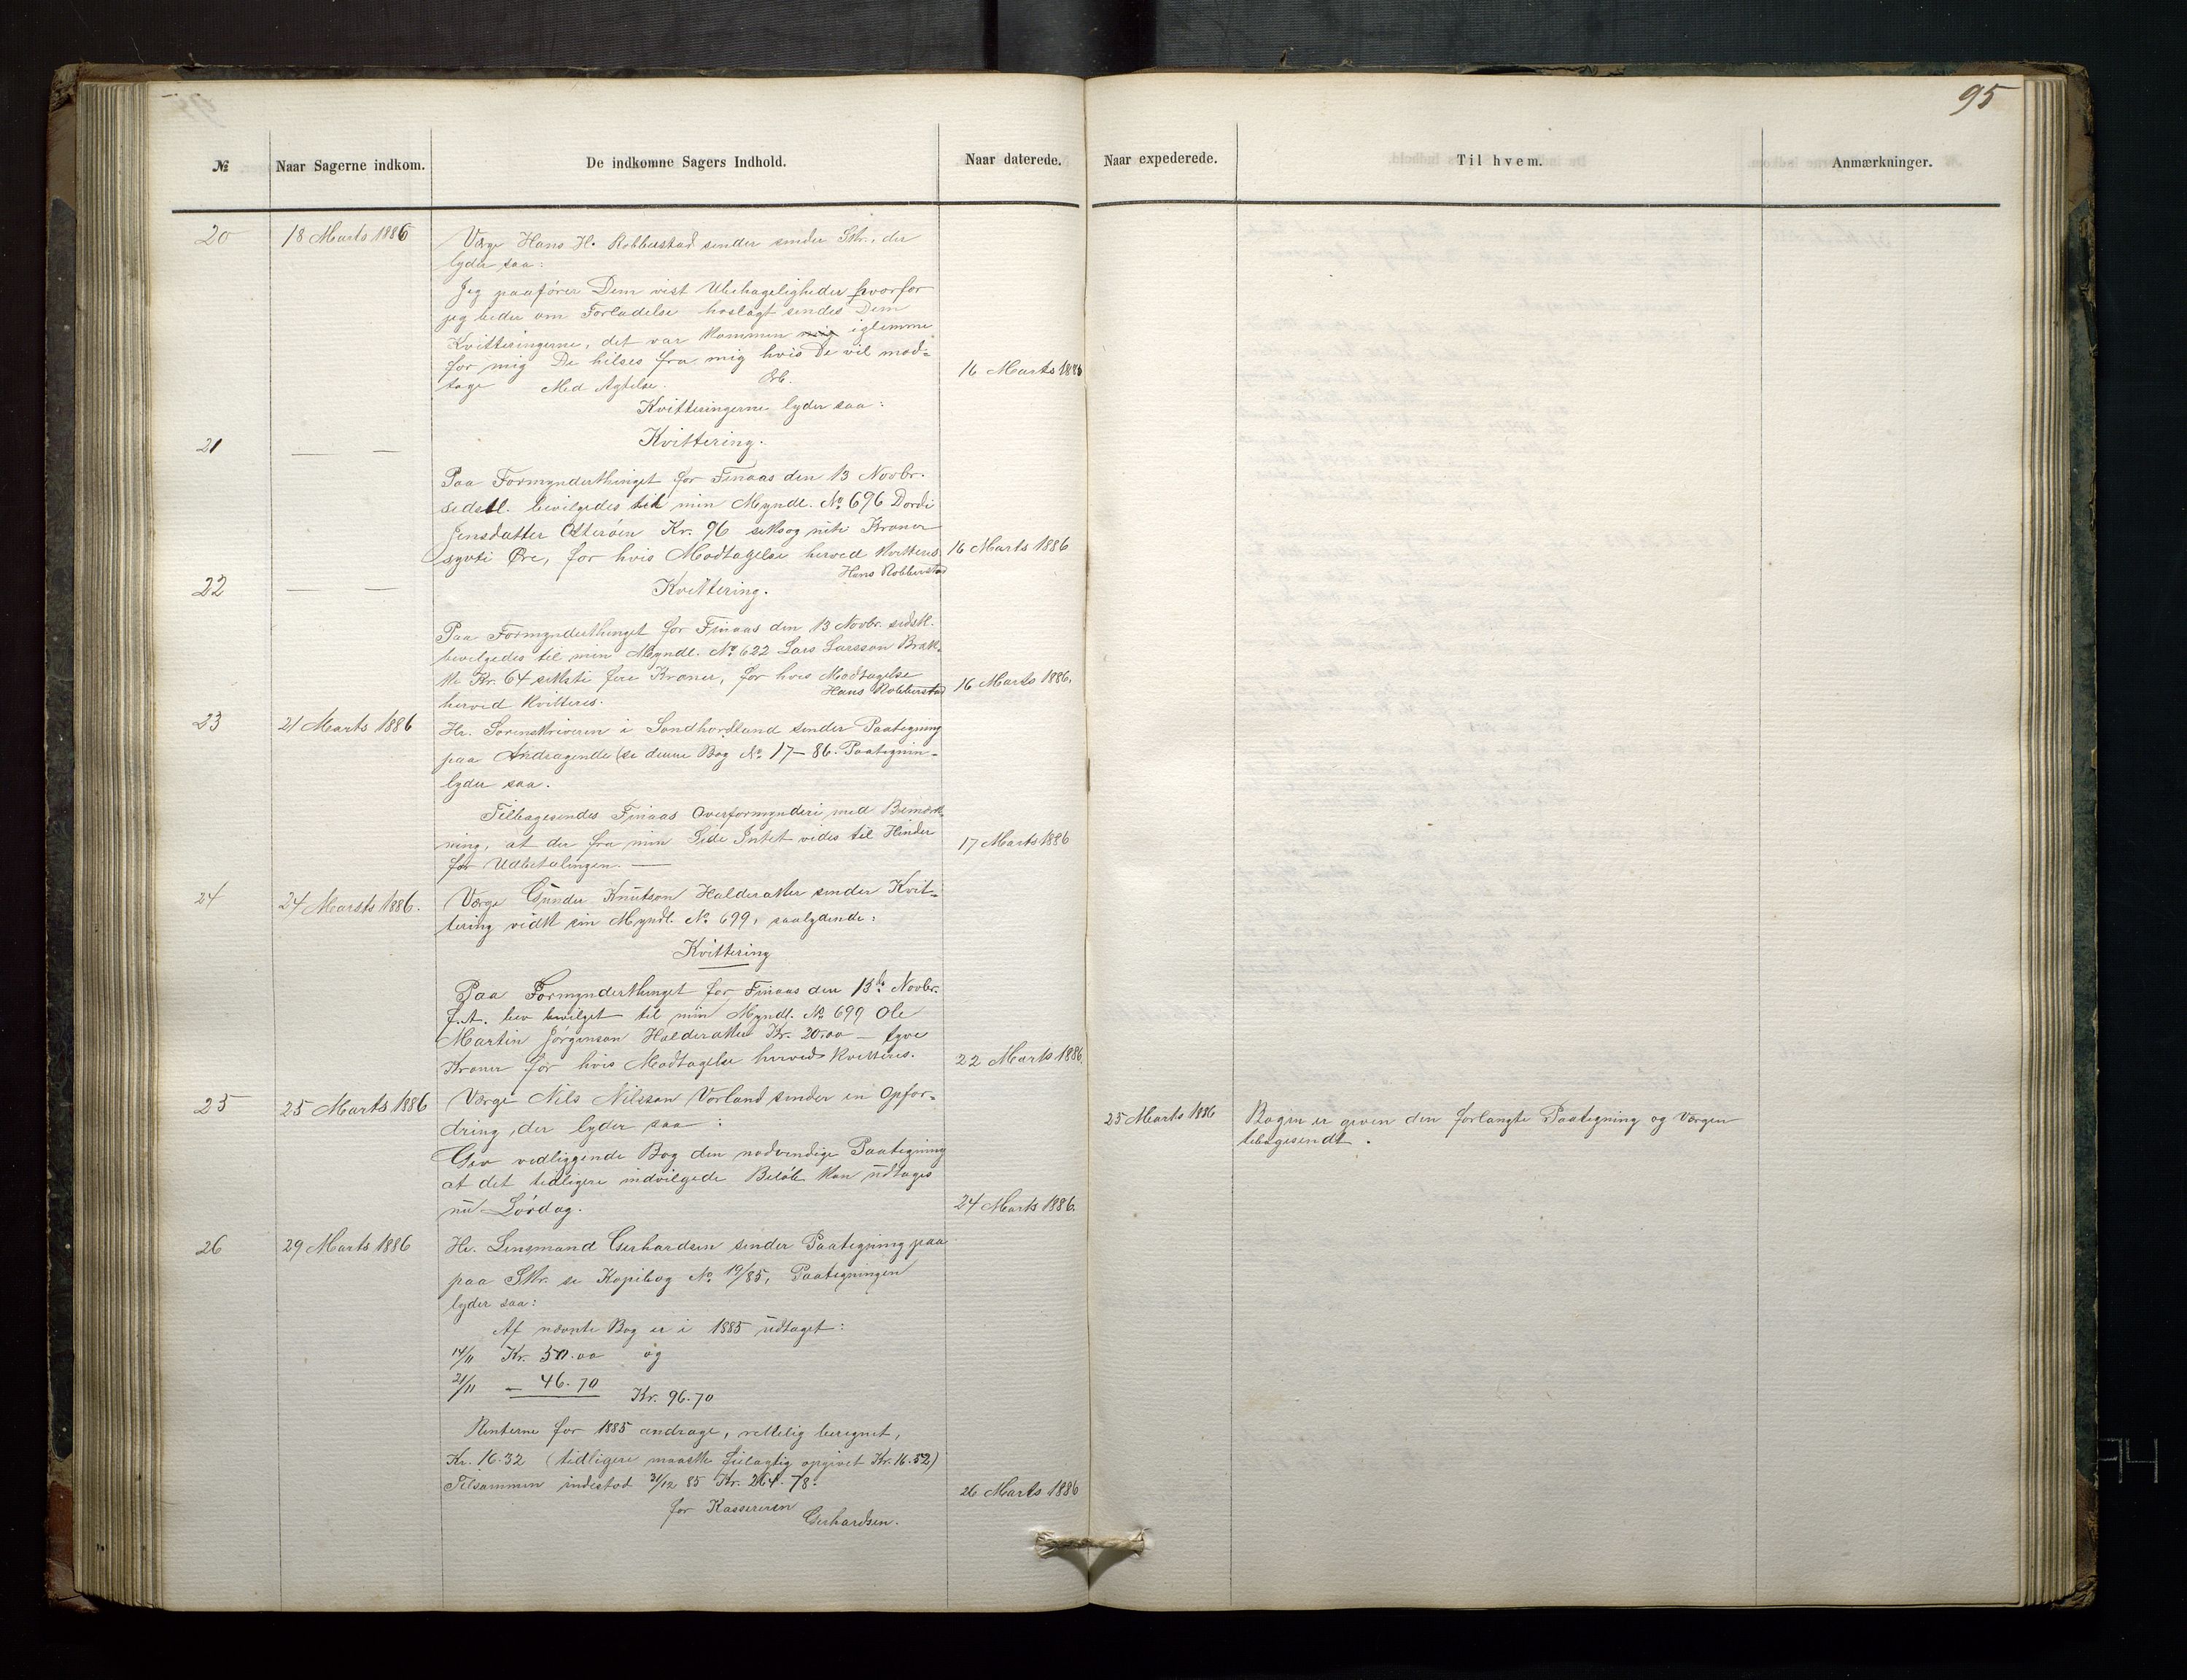 95
№
Naar Sagerne indkom.
De indkomne Sagers Indhold.
Naar daterede.
Naar expederede.
Til hvem.
Anmærkninger.
20
18 Marts 1886
Værge Hans H. Robberstad sender sender Skr., der
lyder saa:
Jeg paafører Dem vist Ubehageligheder hvorfor
jeg beder om Forladelse hoslagt sendes Dem
Kvitteringerne, det var kommen mig iglemme
for mig De hilses fra mig hvis De vil mod-
tage Med Agtelse.
16 Marts 1886
Kvitteringerne lyder saa:
21
— —
Kvittering.
Paa Formynderthinget for Finaas den 13 Novbr.
sidstl. bevilgedes til min Myndl. № 696 Dordi
Jensdatter Otterøen Kr. 96 seksog niti Kroner
sytti Øre, for hvis Modtagelse herved kvitteres.
16 Marts 1886
Hans Robberstad
22
— —
Kvittering.
Paa Formynderthinget for Finaas den 13 Novbr. sidstl.
bevilgedes til min Myndl. № 622 Lars Larsson Brak-
ke Kr. 64 seksti fire Kroner, for hvis Modtagelse
herved kvitteres. Hans Robberstad
16 Marts 1886.
23
21 Marts 1886
Hr. Sorenskriveren i Søndhordland sender Paategning
paa Andragende (se denne Bog № 17–86. Paategnin-
lyder saa.
Tilbagesendes Finaas Overformynderi med Bemærk-
ning, at der fra min Side Intet vides til Hinder
for Udbetalingen. —
17 Marts 1886
24
24 Marsts 1886.
Værge Gunder Knutson Halderaker sender Kvit-
tering vidk sin Myndl. № 699, saalydende:
Kvittering
Paa Formynderthinget for Finaas den 13de Novbr.
f.A. blev bevilget til min Myndl. № 699 Ole
Martin Jørgenson Halderaker Kr. 20.00 — tyve
Kroner for hvis Modtagelse herved kvitteres.
22 Marts 1886.
25
25 Marts 1886
Værge Nils Nilsson Vorland sender en Opfor-
dring, der lyder saa:
Giv vedliggende Bog den nødvendige Paategning
at det tidligere indvilgede Beløb kan udtages
nu Lørdag.
24 Marts 1886.
25 Marts 1886
Bogen er given den forlangte Paategning og Værgen
tilbagesendt.
26
29 Marts 1886
Hr. Lensmand Gerhardsen sender Paategning paa
paa Skr. se Kopibog № 19/85, Paategningen
lyder saa:
Af nævnte Bog er i 1885 udtaget:
14/11 Kr. 50.00 og
21/11 – 46.70 Kr. 96.70
Renterne for 1885 andrage, rettelig beregnet,
Kr. 16.32 (tidligere maaske feilagtig opgivet Kr. 16.52)
Tilsammen indestod 31/12 85 Kr. 264.78.
26 Marts 1886
for Kassereren
Gerhardsen.